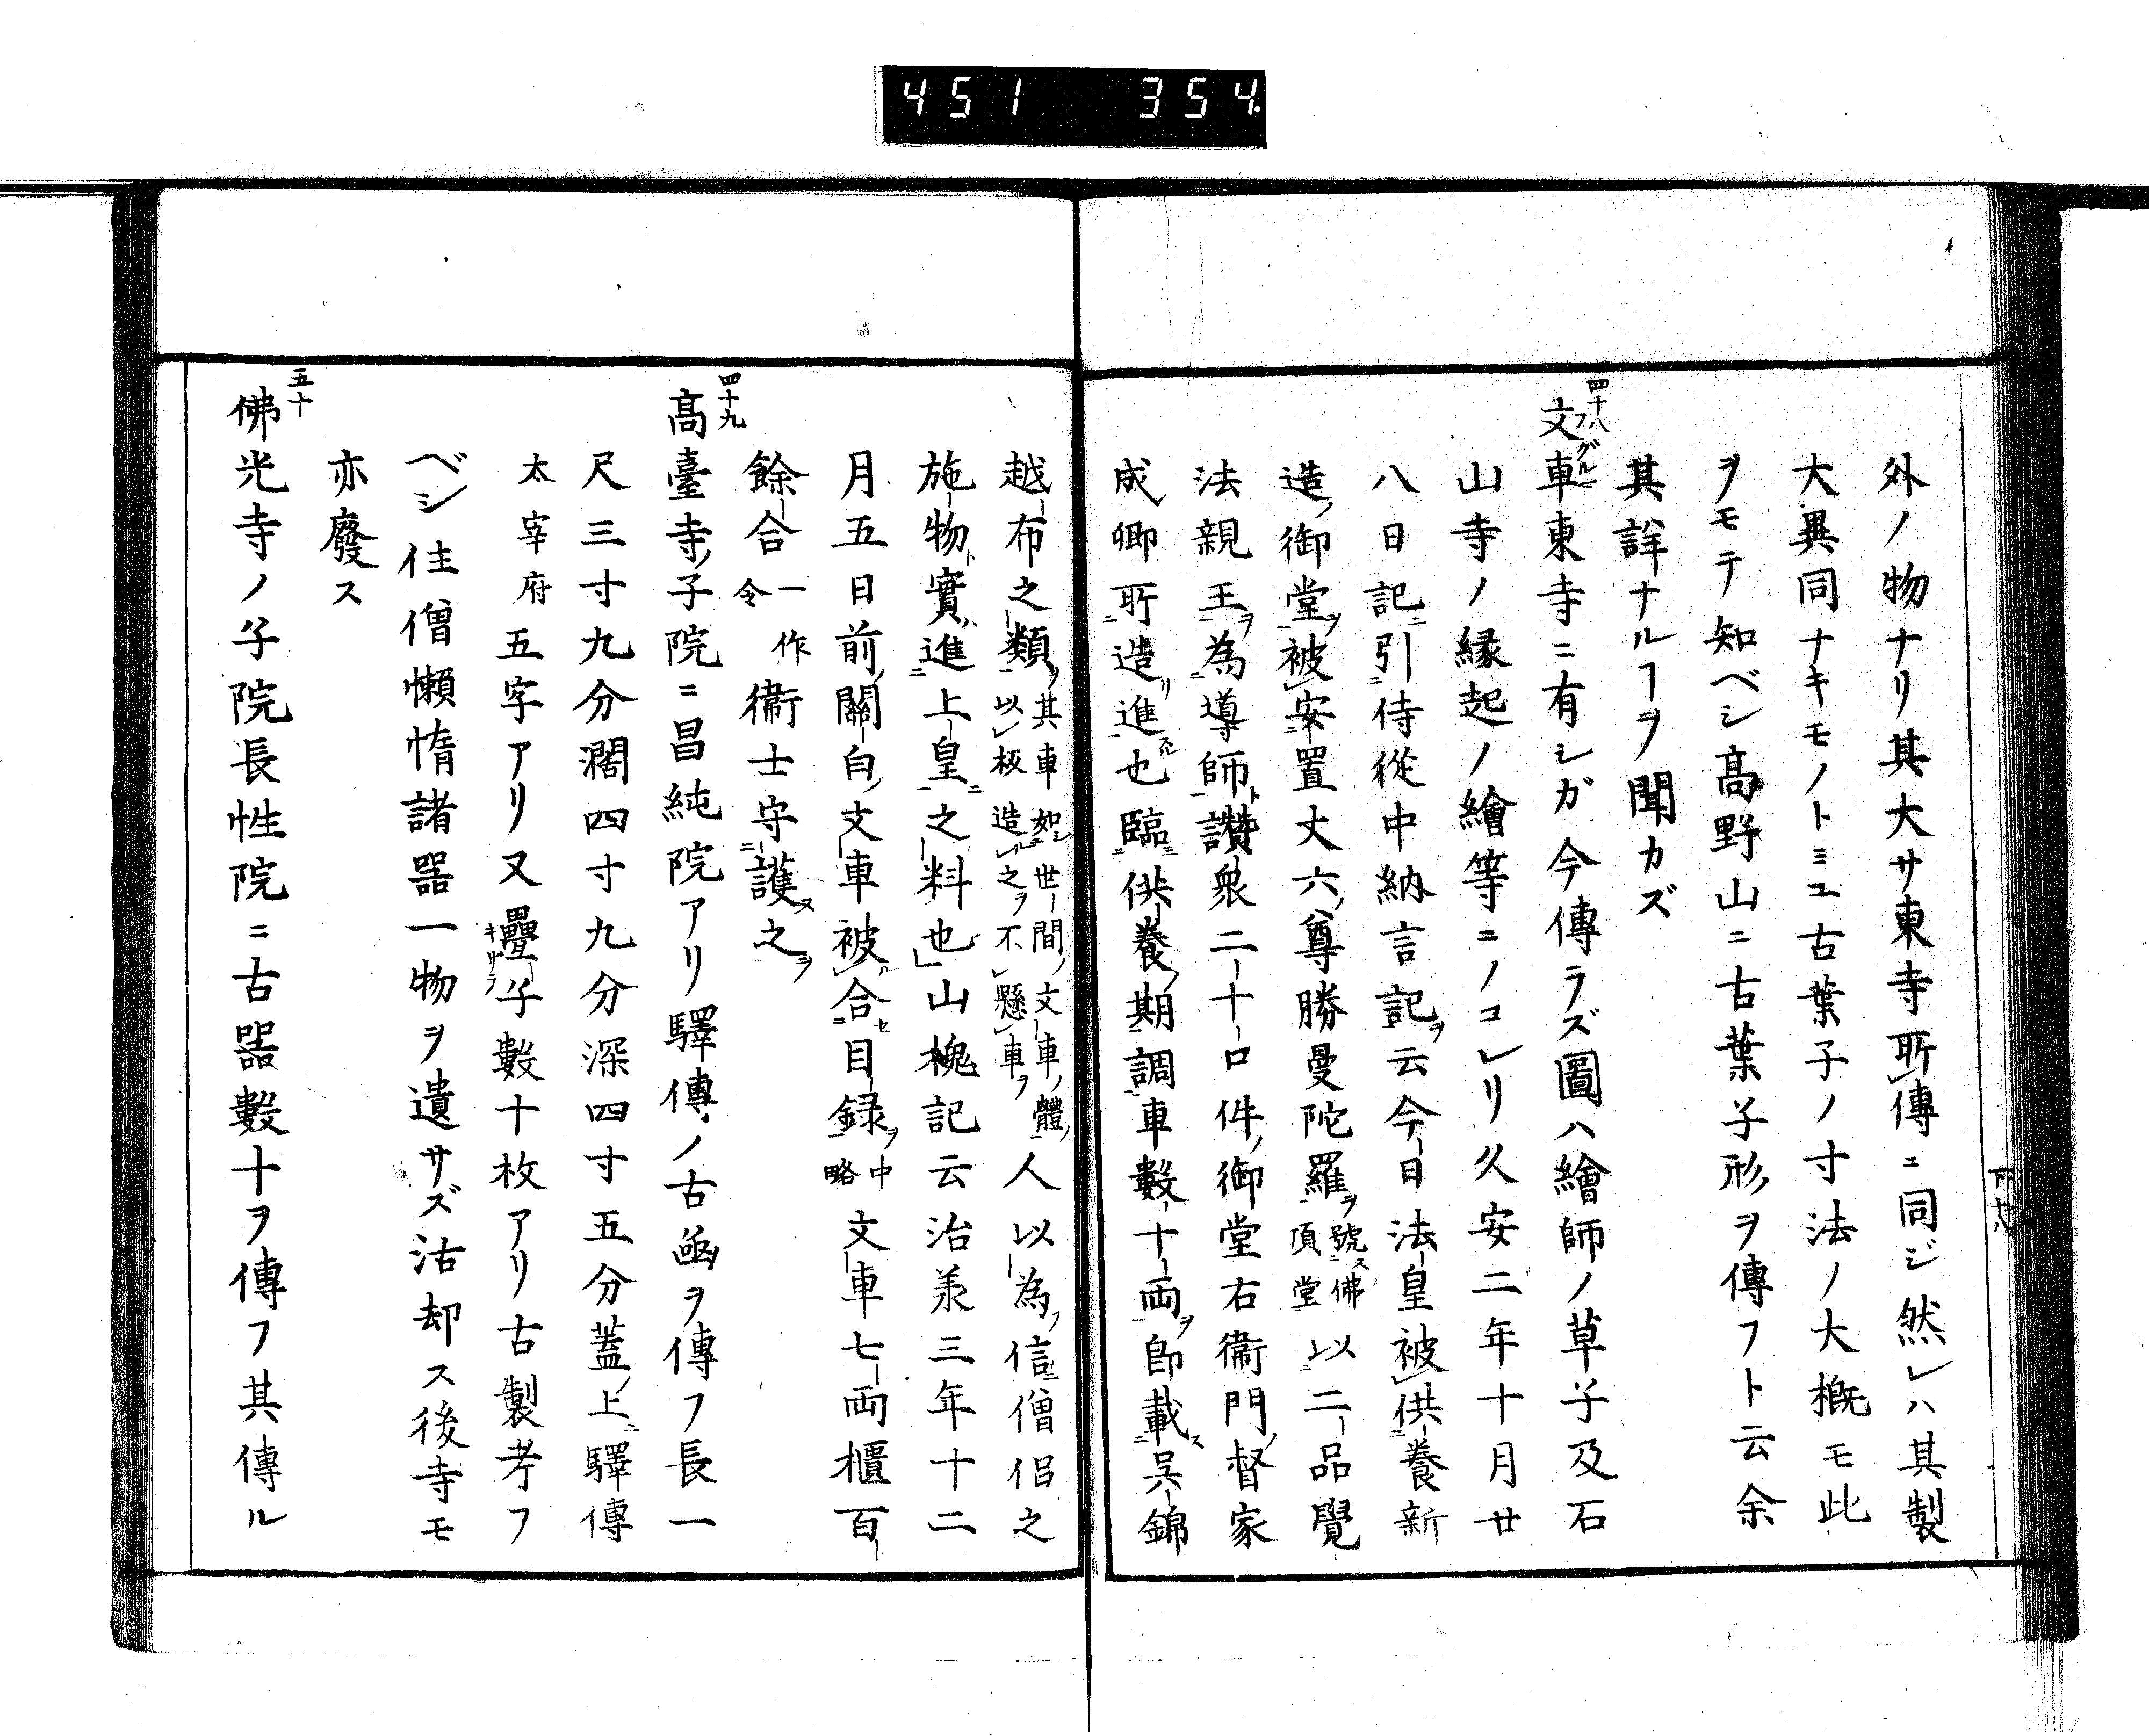 451 354
外ノ物ナリ其大サ東寺所傳ニ同ジ然レハ其製
大異同ナキモノトミユ古葉子ノ寸法ノ大概モ此
ヲモテ知ベシ高野山ニ古葉子形ヲ傳フト云余
其詳ナルヿヲ聞カズ
四十八
文車東寺ニ有シガ今傳ラズ圖ハ繪師ノ草子及石
山寺ノ縁起ノ繪等ニノコレリ久安二年十月廿
八日記引侍從中納言記ヲ云今日法皇被供養新
造御堂ヲ被安置丈六ノ尊勝曼陀羅ヲ號ス佛頂堂以二品覺
法親王ヲ為導師ト讚衆二十口件ノ御堂右衞門ノ督家
成卿所造リ進スル也臨供養ノ期調車數十両ヲ即載ス呉錦
越布之類ヲ其車如世間ノ文車ノ體ノ以板造之ヲ不懸車ヲ人以為ノ信僧侶之
施物ト實ハ進上皇ニ之料也山槐記云治羕三年十二
月五日前ノ關白ノ文車被合セ目録ヲ中略文車七両櫃百
餘合一作令衞士守護ス之ヲ
四十九
高臺寺ノ子院ニ昌純院アリ驛傳ノ古凾ヲ傳フ長一
尺三寸九分濶四寸九分深四寸五分蓋ノ上ニ驛傳
太宰府五字アリ又疊子數十枚アリ古製考フ
ベシ住僧懶惰諸噐一物ヲ遺サズ沽却ス後寺モ
亦廢ス
五十
佛光寺ノ子院長性院ニ古噐數十ヲ傳フ其傳ル